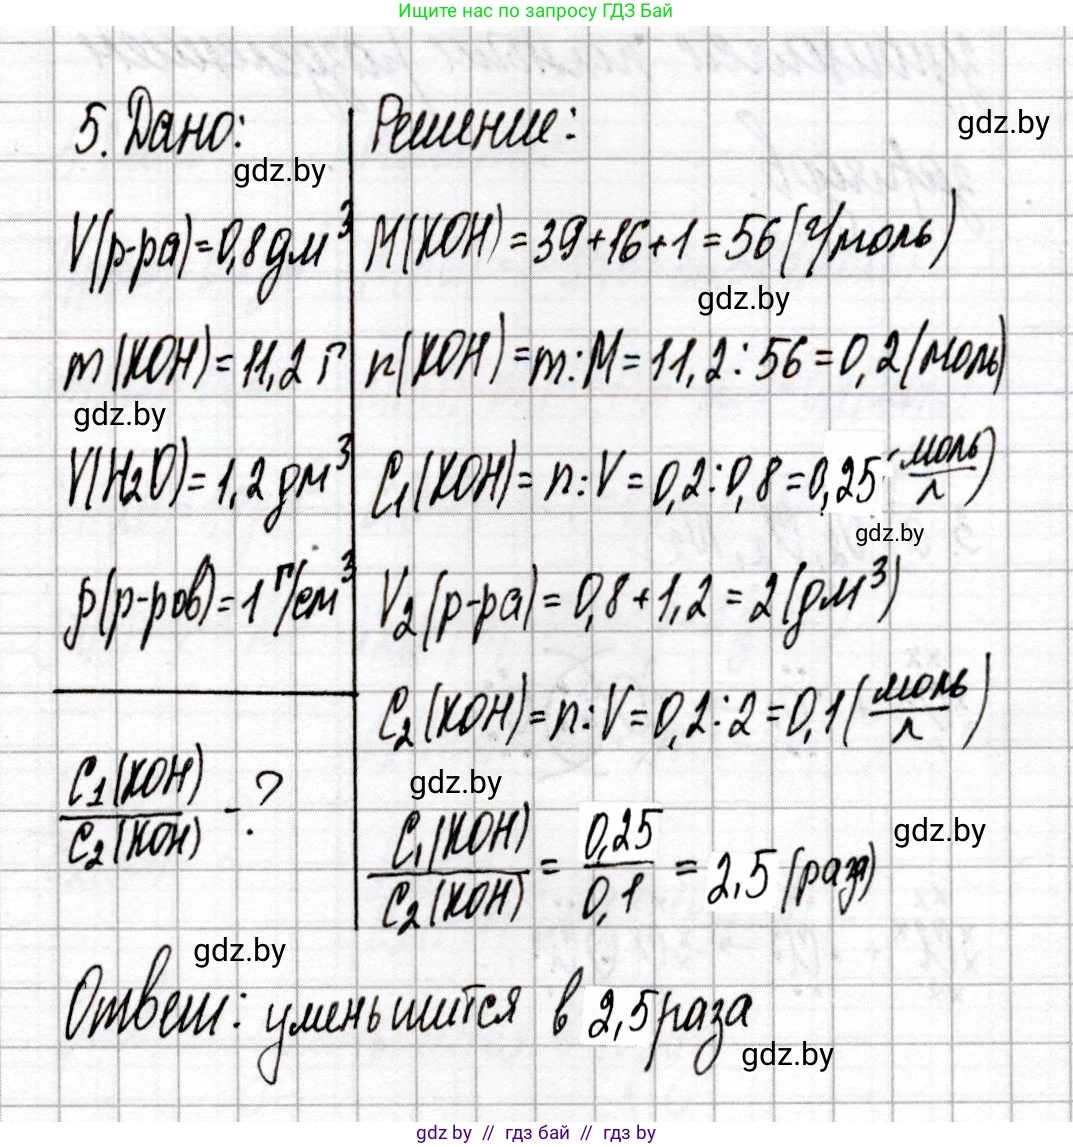 Ищите нас по запросу ГДЗ Бай
5. Дано:
gdz.by
V(р-ра)=0,8 дм³
m(KOH)=11,2 г
gdz.by
V(H₂O)=1,2 дм³
ρ(р-ров)=1 г/см³
C₁(KOH)
C₂(KOH)
-?
Решение:
gdz.by
M(KOH)=39+16+1=56 (г/моль)
gdz.by
n(KOH)=m:M=11,2:56=0,2(моль)
C₁(KOH)=n:V=0,2:0,8=0,25(моль/л)
gdz.by
V₂(р-ра)=0,8+1,2=2(дм³)
C₂(KOH)=n:V=0,2:2=0,1(моль/л)
gdz.by
C₁(KOH)/C₂(KOH)=0,25/0,1=2,5 (раза)
gdz.by
gdz.by
Ответ: уменьшится в 2,5 раза
gdz.by
gdz.by // гдз бай // гдз by